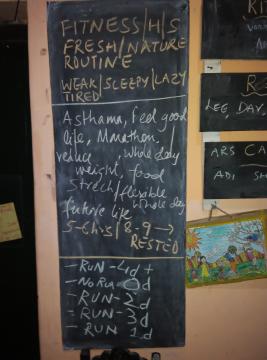 FITNESS/H/S
FRESH/NATURE
ROUTINE
WEAK/SLEEPY/LAZY
TIRED
Asthama, Feel good
life, Marathon,
reduce, whole day
weight, food
strech/flexible
future life, whole day
5-6hrs/8-9→
RESTED
- RUN - 4d +
- NO RUN 0d
- RUN - 2d
- RUN - 3d
- RUN 1d
KI
R
LEE, DAY,
ARS CA
ADI SH